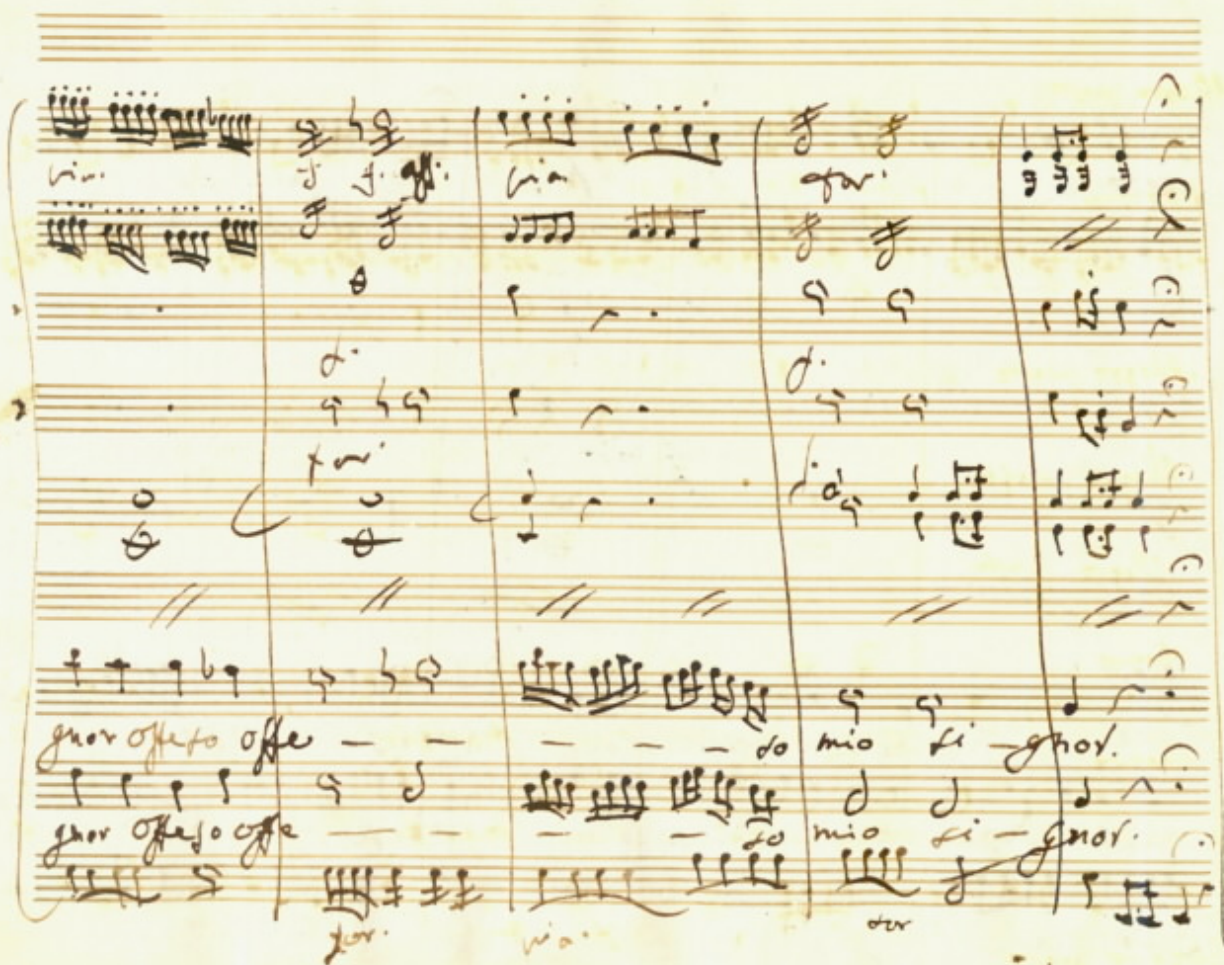 pia. f. f. aff. pia for.
f. f.
for.
gnor offeso offe — — — — — so mio si – gnor.
gnor offeso offe — — — — — so mio si – gnor.
for. pia. for